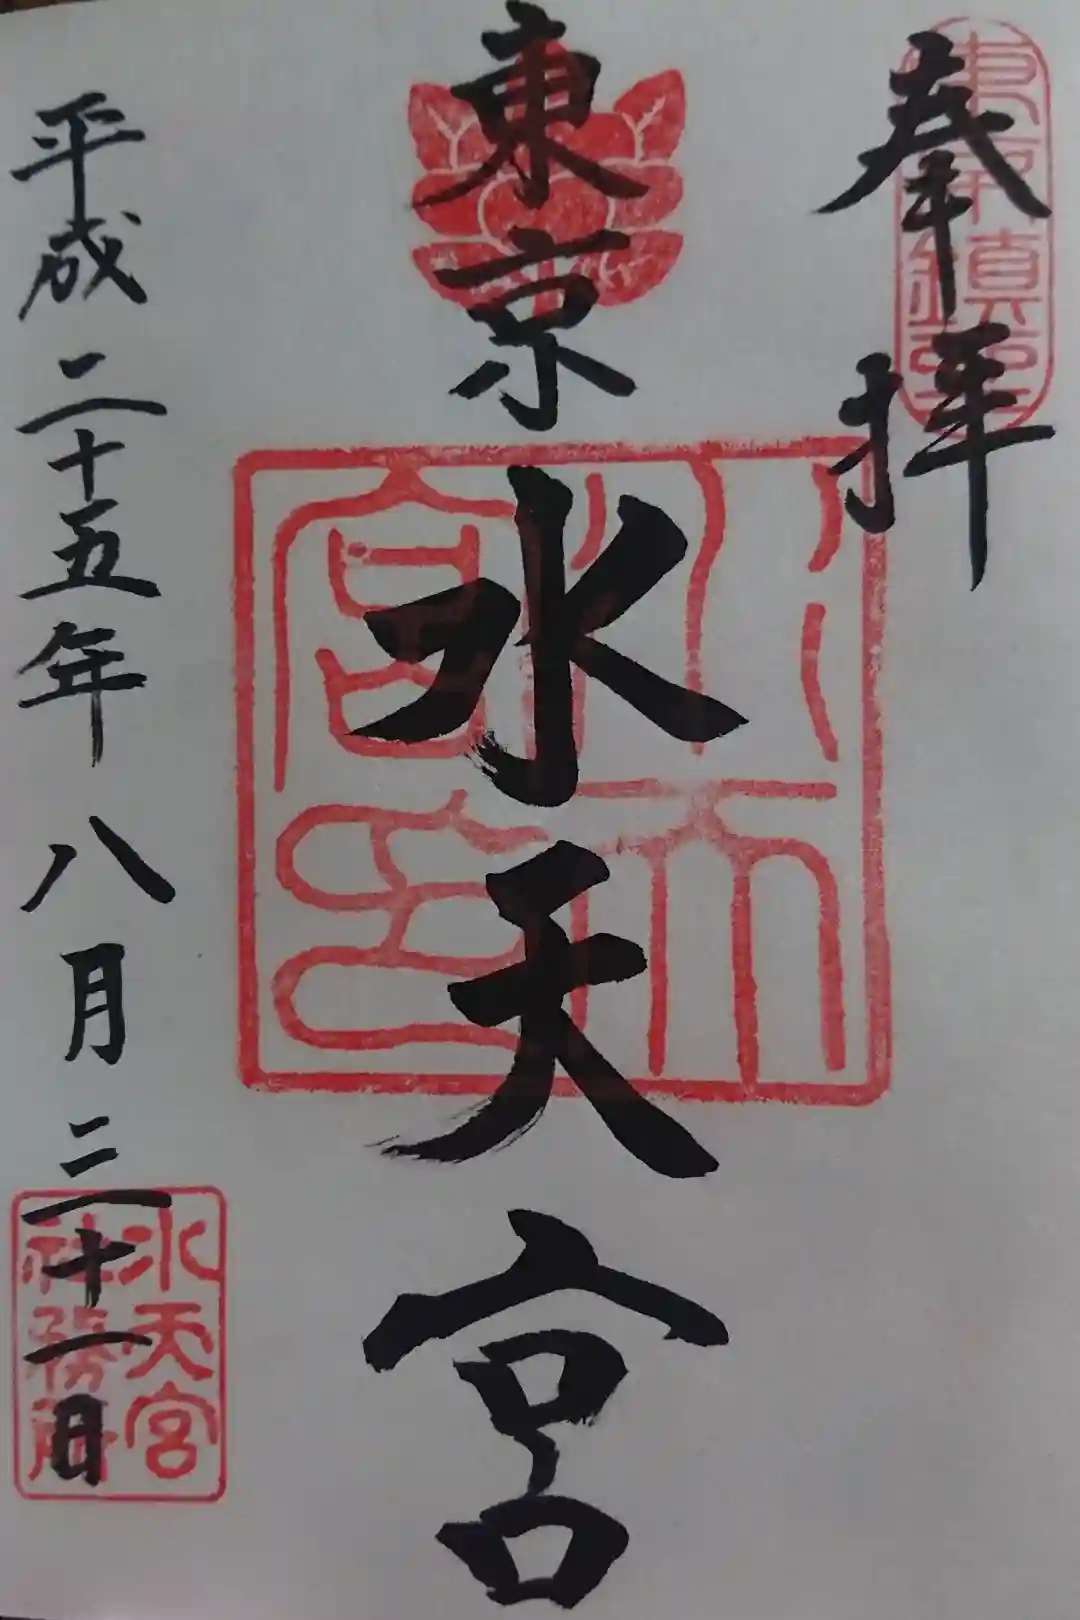 奉拝
東京水天宮
水天
宮印
平成二十五年八月三十一日
水天宮
社務所